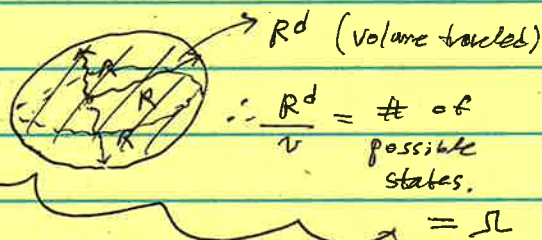 R^d (volume traveled)
R
R
R
∴ R^d / v = # of
possible
states.
= Ω